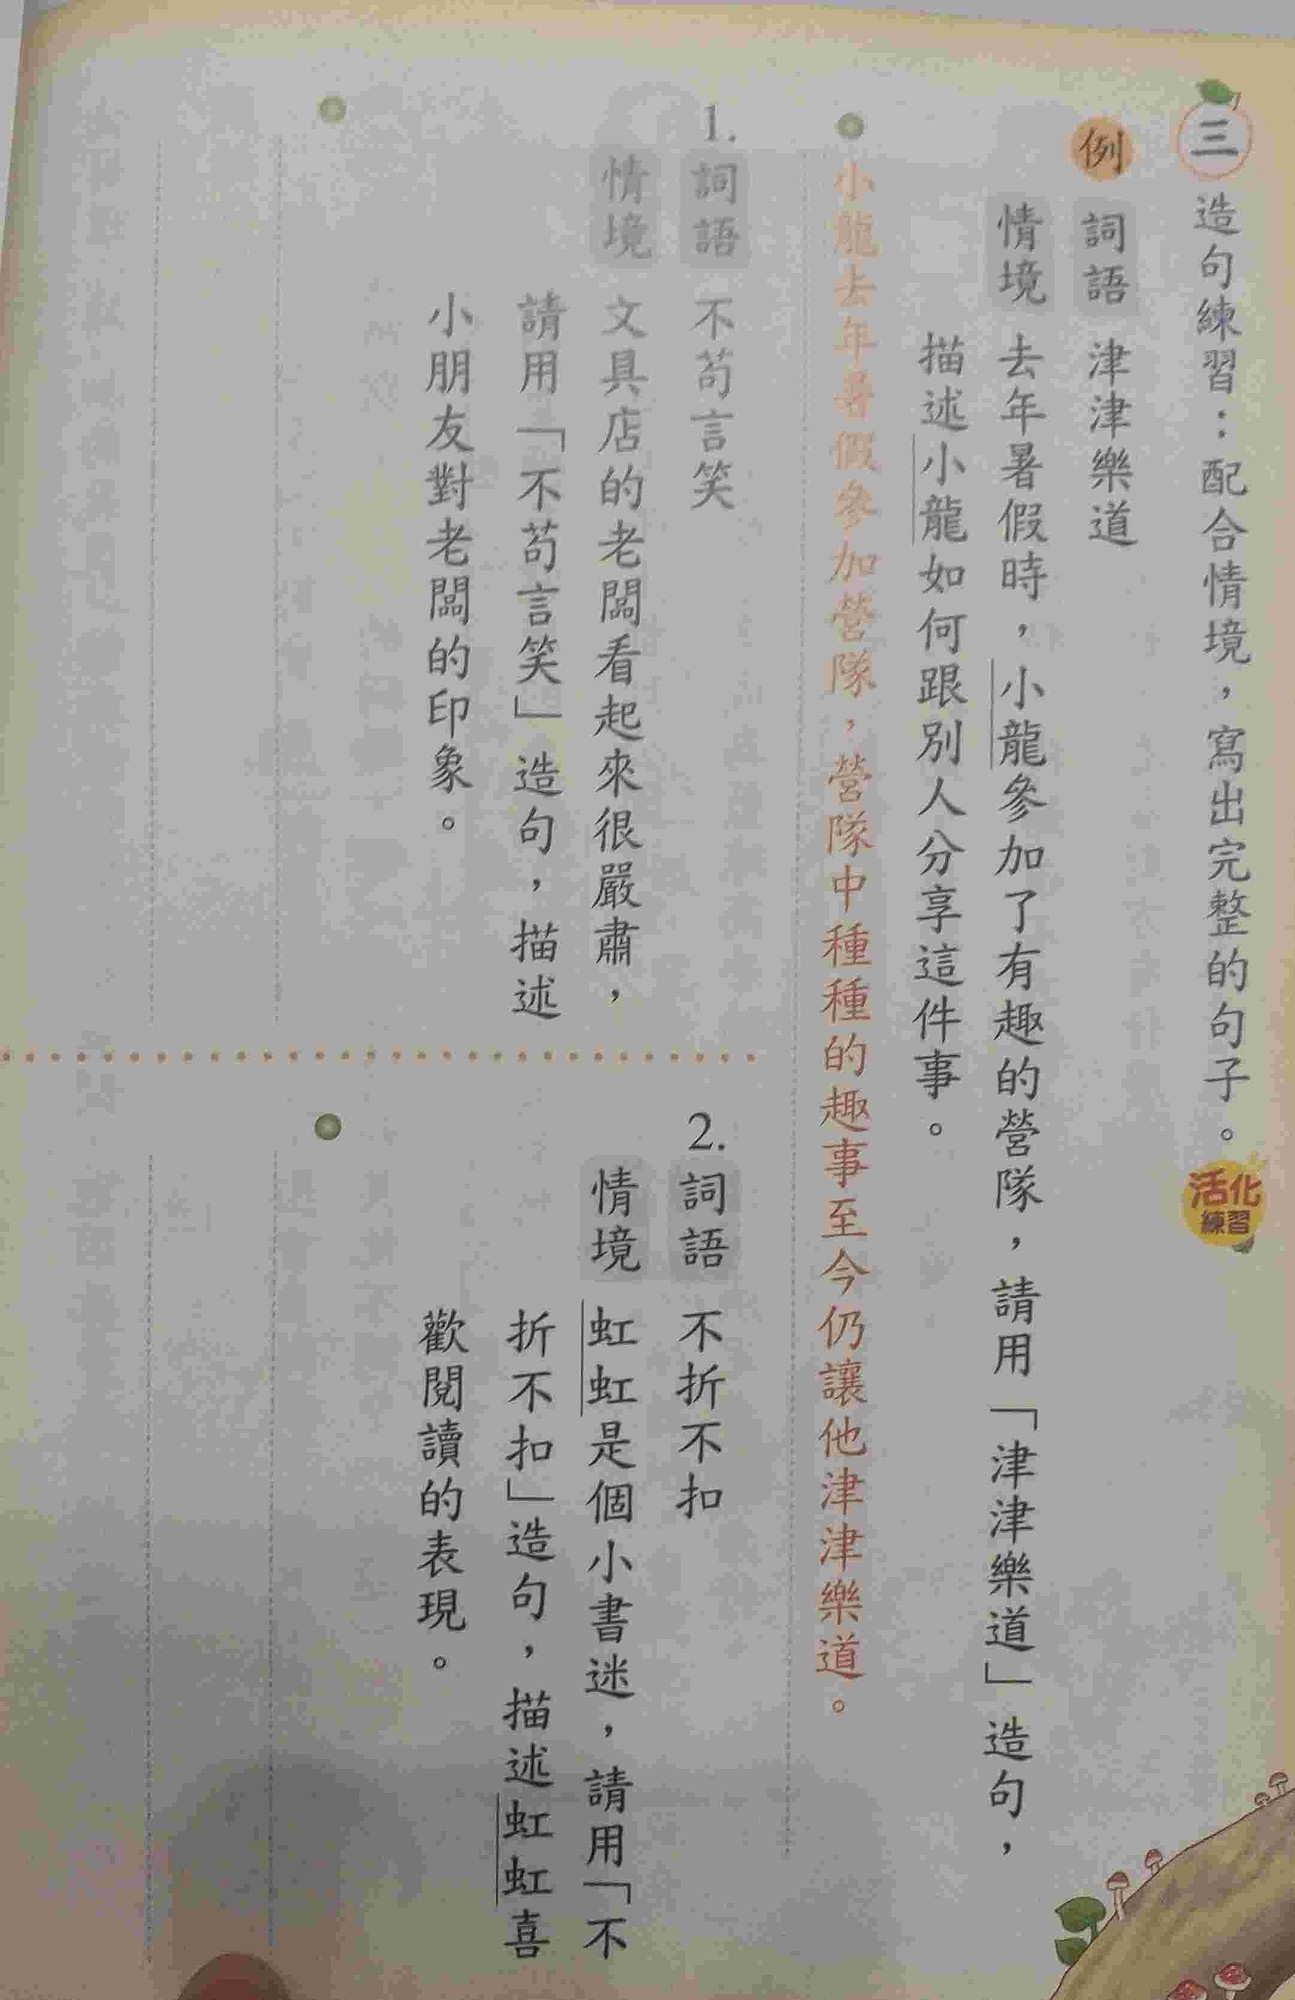 三 造句練習：配合情境，寫出完整的句子。活化練習
例 詞語 津津樂道
情境 去年暑假時，小龍參加了有趣的營隊，請用「津津樂道」造句，
描述小龍如何跟別人分享這件事。
小龍去年暑假參加營隊，營隊中種種的趣事至今仍讓他津津樂道。
1. 詞語 不苟言笑
情境 文具店的老闆看起來很嚴肅，
請用「不苟言笑」造句，描述
小朋友對老闆的印象。
2. 詞語 不折不扣
情境 虹虹是個小書迷，請用「不
折不扣」造句，描述虹虹喜
歡閱讀的表現。